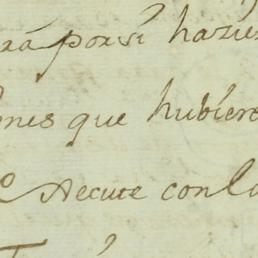 rá por sí hazie
ones que hubiere
execute con la